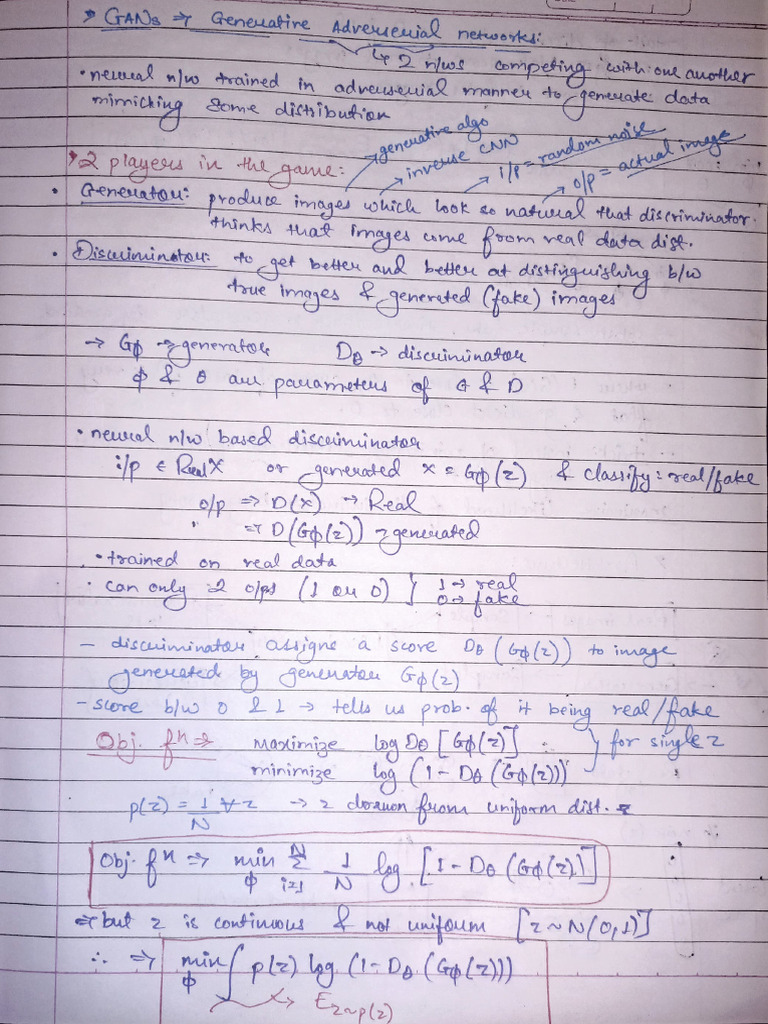 » GANs => Generative Adverserial networks:
↳ 2 n/ws competing with one another
• neural n/w trained in adverserial manner to generate data
mimicking some distribution
» 2 players in the game:
→ generative algo
→ inverse CNN
→ i/p = random noise
→ o/p = actual image
• Generator: produce images which look so natural that discriminator
thinks that images come from real data dist.
• Discriminator: to get better and better at distinguishing b/w
true images & generated (fake) images
→ Gϕ → generator Dθ → discriminator
ϕ & θ are parameters of G & D
• neural n/w based discriminator
i/p ∈ Real X or generated x = Gϕ(z) & classify: real/fake
o/p => D(x) → Real
=> D(Gϕ(z)) → generated
• trained on real data
• can only 2 o/ps (1 or 0) } 1 → real
0 → fake
– discriminator assigns a score Dθ(Gϕ(z)) to image
generated by generator Gϕ(z)
– score b/w 0 & 1 → tells us prob. of it being real/fake
Obj. fⁿ => maximize log Dθ[Gϕ(z)] } for single z
minimize log (1 - Dθ(Gϕ(z)))
p(z) = 1/N ∀ z → z drawn from uniform dist.
Obj. fⁿ => min ϕ N Σ i=1 1/N log [1 - Dθ(Gϕ(z))]
=> but z is continuous & not uniform [z ~ N(0,1)]
∴ => min ϕ ∫ p(z) log (1 - Dθ(Gϕ(z)))
→ E z~p(z)